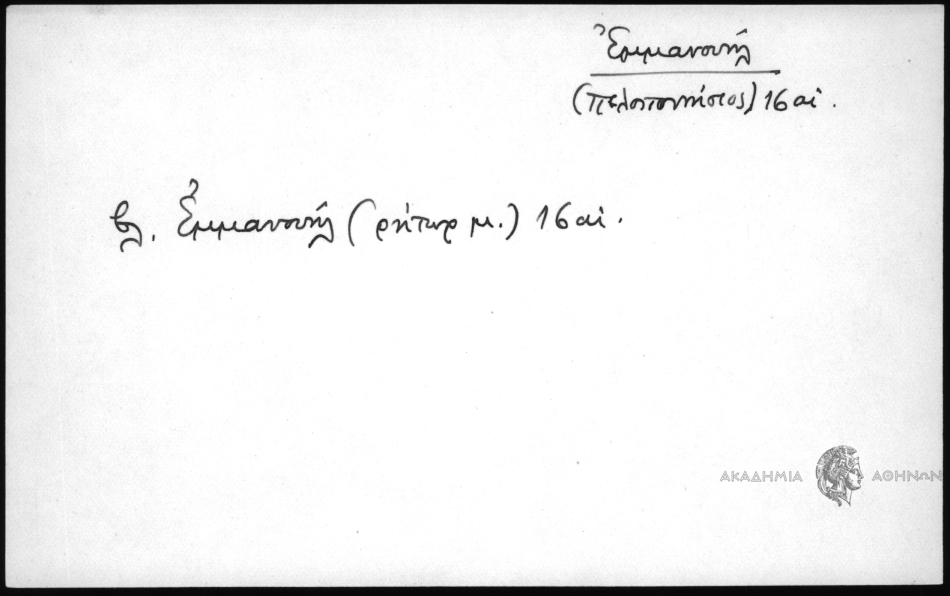 Ἐμμανουήλ
(πελοποννήσιος) 16 αἰ.
βλ. Ἐμμανουήλ (ρήτωρ μ.) 16 αἰ.
ΑΚΑΔΗΜΙΑ ΑΘΗΝΩΝ